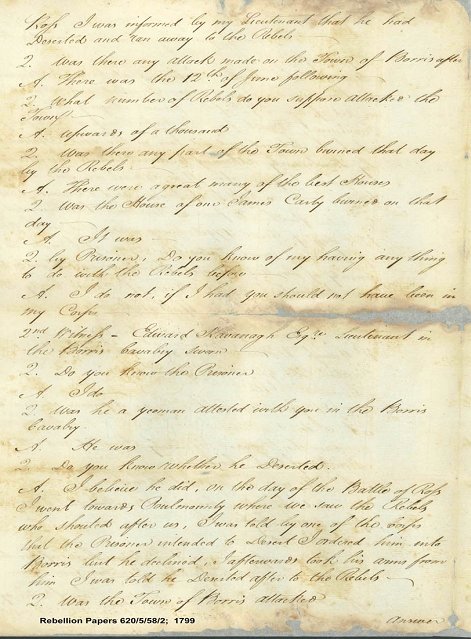 Ross I was informed by my Lieutenant that he had
Deserted and ran away to the Rebels
Q. Was there any attack made on the Town of Borris after
A. There was the 12th of June following
Q. What number of Rebels do you suppose attacked the
Town
A. upwards of a thousand
Q. Was there any part of the Town burned that day
by the Rebels
A. There were a great many of the best Houses
Q. Was the House of one James Carty burned on that
day
A. It was
Q. by Prisoner, Do you know of my having any thing
to do with the Rebels before
A. I do not, if I had you should not have been in
my Corps
2nd Witness - Edward Kavanagh Esqre. Lieutenant in
the Borris Cavalry sworn
Q. Do you know the Prisoner
A. I do
Q. Was he a yeoman attested with you in the Borris
Cavalry
A. He was
Q. Do you know whether he Deserted.
A. I believe he did, on the day of the Battle of Ross
I went towards where we saw the Rebels
who shouted after us, I was told by one of the corps
that the Prisoner intended to Desert I ordered him into
Borris but he declined, I afterwards took his arms from
him I was told he Deserted after to the Rebels
Q. Was the Town of Borris attacked
Answer
Rebellion Papers 620/5/58/2; 1799